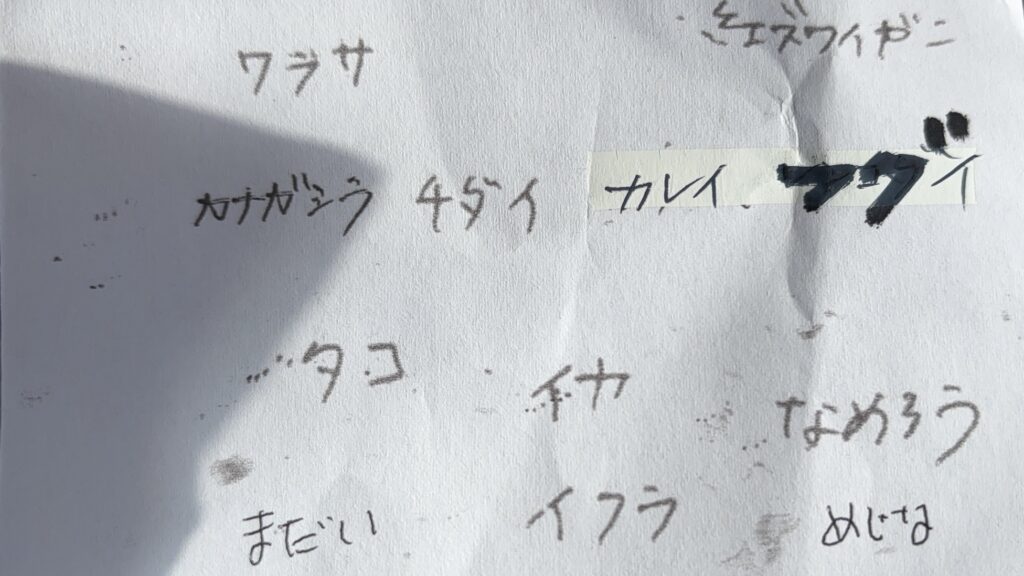 ワラサ 紅ズワイガニ
カナガシラ チダイ カレイ
タコ イカ なめろう
まだい イクラ めじな